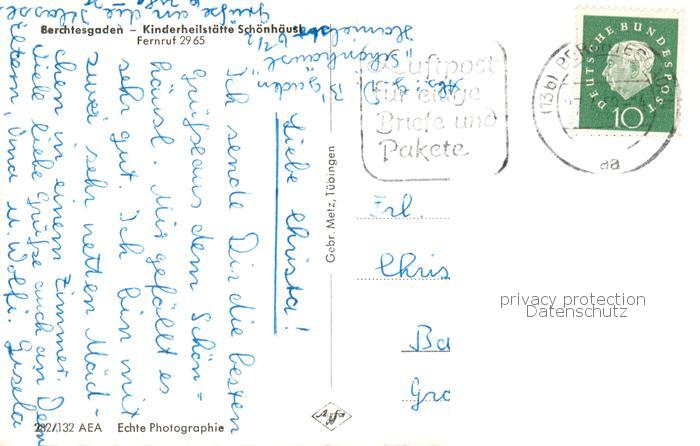 Berchtesgaden – Kinderheilstätte Schönhäusl
Fernruf 29 65
Liebe Christa!
Ich sende Dir die besten
Grüße aus dem Schön=
häusl. Mir gefällt es
sehr gut. Ich bin mit
zwei sehr netten Mäd-
chen in einem Zimmer.
Viele liebe Grüße auch an Deine
Eltern, Oma u. Wolfi. Gisela
Grüße an die Klasse
"Schönhäusl"
B'gaden
Gebr. Metz, Tübingen
Luftpost
für eilige
Briefe und
Pakete
(13b) BERCHTES
aa
DEUTSCHE BUNDESPOST
10
Frl.
Chris
Ba
Gro
privacy protection
Datenschutz
282/132 AEA Echte Photographie
Agfa